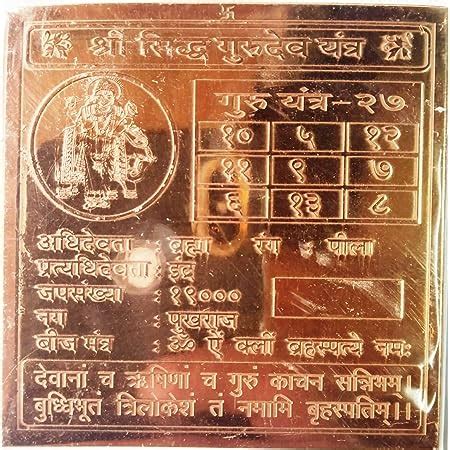 श्री सिद्ध गुरुदेव यंत्र
गुरु यंत्र-२७
१० ५ १२
११ ९ ७
६ १३ ८
अधिदेवता : ब्रह्मा रंग पीला
प्रत्यधिदेवता : इंद्र
जपसंख्या : १९०००
नग : पुखराज
बीज मंत्र : ॐ ऐं क्लीं ब्रहस्पत्ये नमः
देवानां च ऋषिणां च गुरुं काचन सन्निभम्।
बुध्धिभूतं त्रिलाकेशं तं नमामि बृहस्पतिम्।।